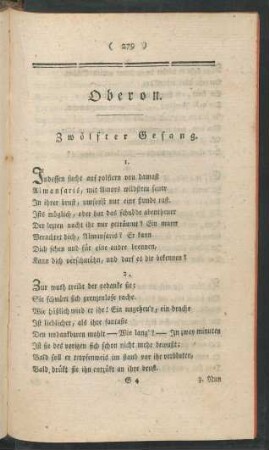 ( 279 )
Oberon.
Zwölfter Gesang.
1.
Indessen sucht auf polstern von damast
Almansaris, mit Amors wildstem feuer
In ihrer brust, umsonst nur eine stunde rast.
Ists möglich, oder hat das schnöde abenteuer
Der letzten nacht ihr nur geträumt? Ein mann
Verachtet dich, Almansaris? Er kann
Dich sehen und für eine andre brennen,
Kann dich verschmähn, und darf es dir bekennen?
2.
Zur wuth treibt der gedanke sie:
Sie schwöret sich grenzenlose rache.
Wie häßlich wird er ihr! Ein ungeheu'r, ein drache
Ist lieblicher, als ihre fantasie
Den undankbaren mahlt — Wie lang'? — In zwey minuten
Ist sie des vorigen sich schon nicht mehr bewußt:
Bald soll er tropfenweis im staub vor ihr verbluten,
Bald, drückt sie ihn entzückt an ihre brust.
S 4
3. Nun